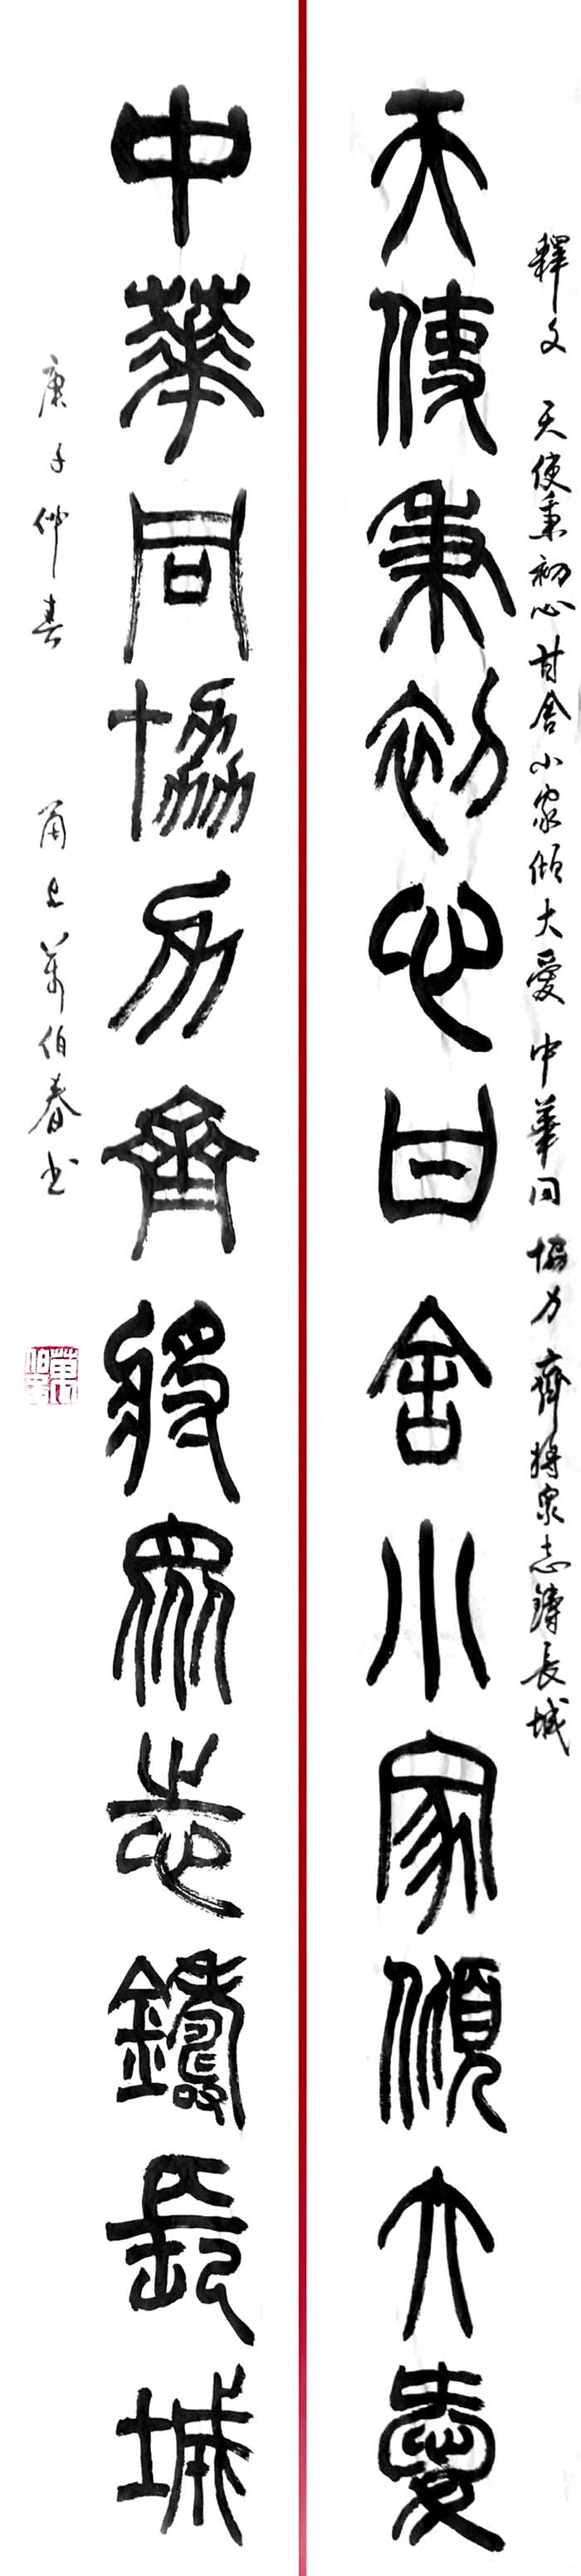 釋文 天使秉初心甘舍小家傾大愛 中華同協力齊將衆志鑄長城
天使秉初心甘舍小家傾大愛
中華同協力齊將衆志鑄長城
庚子仲春 甬上萬伯春書